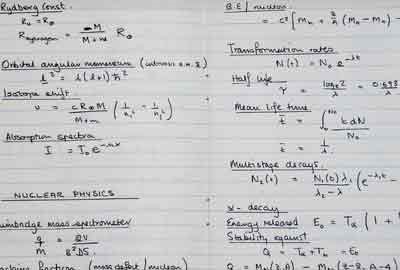 Rydberg Const.
R∞ = R∞
R Hydrogen = ∞M / M+m R∞
Orbital angular momentum (intrinsic a.m. )
L² = l(l+1) ħ²
Isotope shift.
υ = cR∞M / M+m ( 1/n² - 1/n² )
Absorption spectra
I = I₀ e
NUCLEAR PHYSICS
mass spectrometer
q/M = 2V / B²DS
fraction (mass defect / nucleon)
B.E / nucleon
= c² [ Mn + Z/A (MH - Mn) -
Transformation rates
N(t) = N₀ e^-λt
Half life
τ = loge2 / λ = 0.693 / λ
Mean life time
t̄ = ∫ t dN / N₀
t̄ = 1/λ
Multistage decays.
N₂(t) = N₁(0) λ₁ / λ₂ - λ₁ ( e^-λ₁t -
α - decay
Energy released E₀ = Tα ( 1 +
Stability against
Q = Tα + Tb = E₀
Q = M (Z, A) - M (Z-2, A-4)